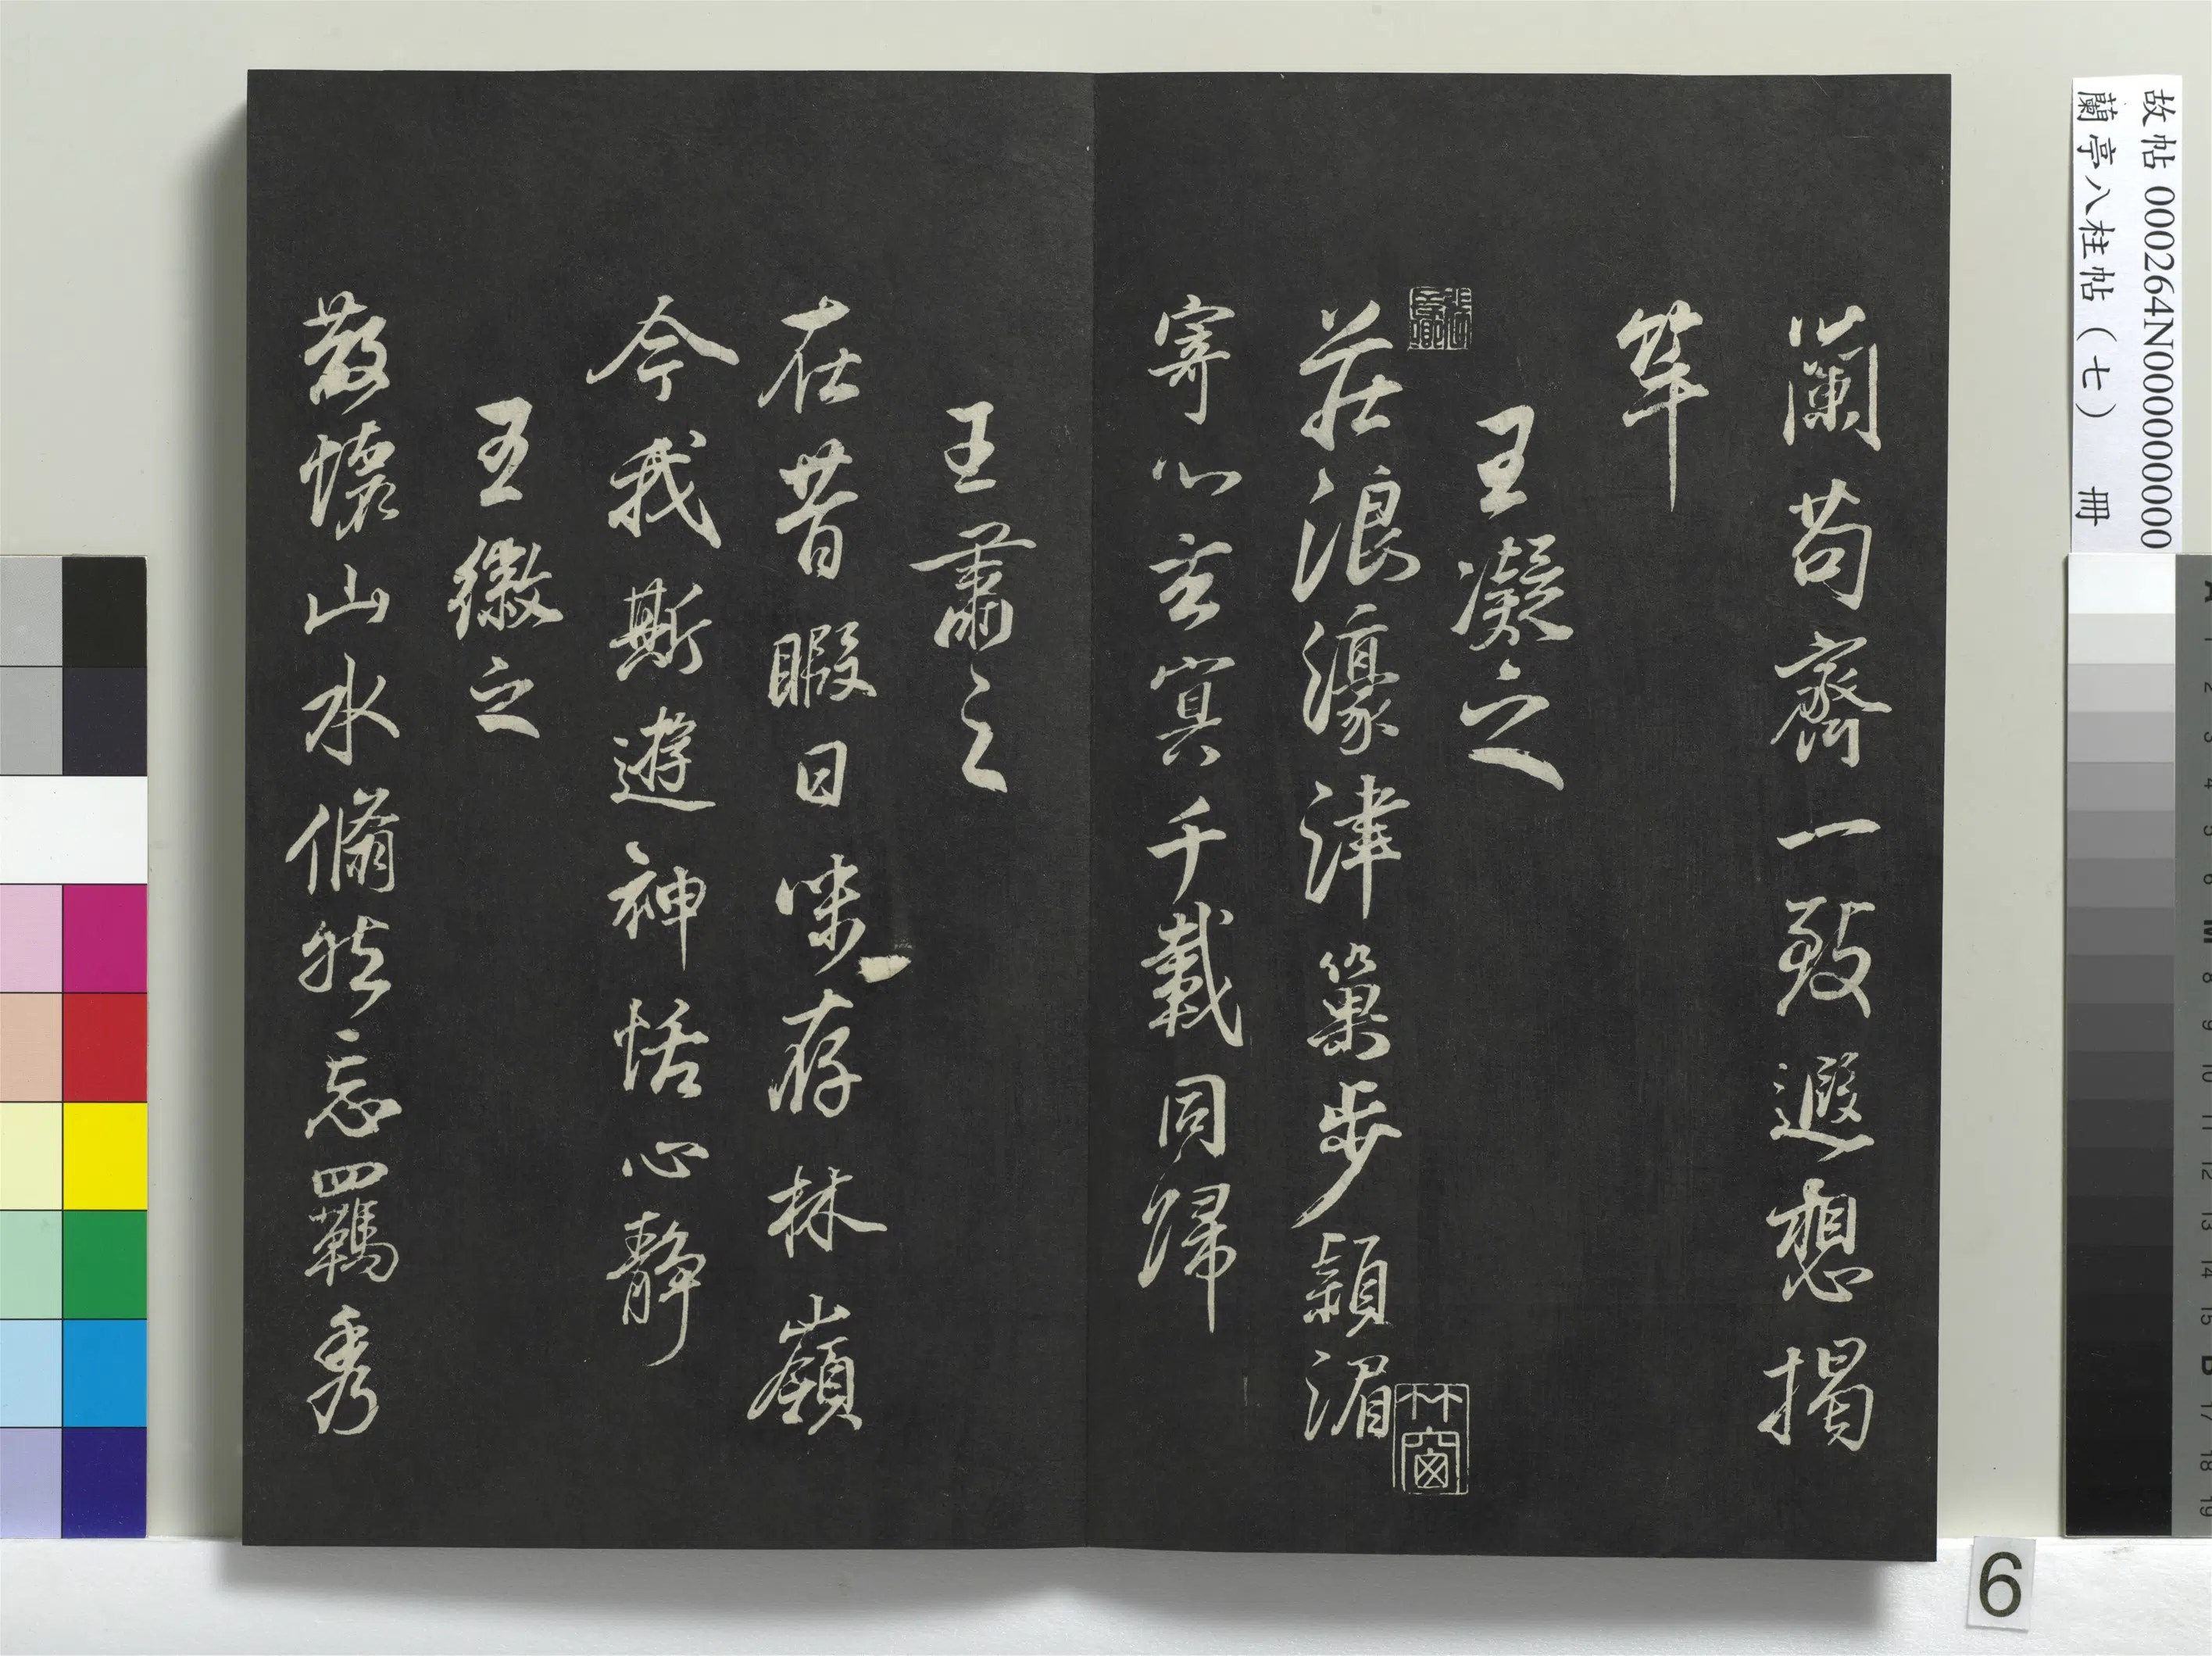 故帖 000264N000000000
蘭亭八柱帖（七） 冊
蘭苟齊一致遐想揭
竿
王凝之
莊浪濠津巢步潁湄
寄心玄冥千載同歸
王肅之
在昔暇日味存林嶺
今我斯遊神恬心靜
王徽之
散懷山水翛然忘羈秀
竹窗
6